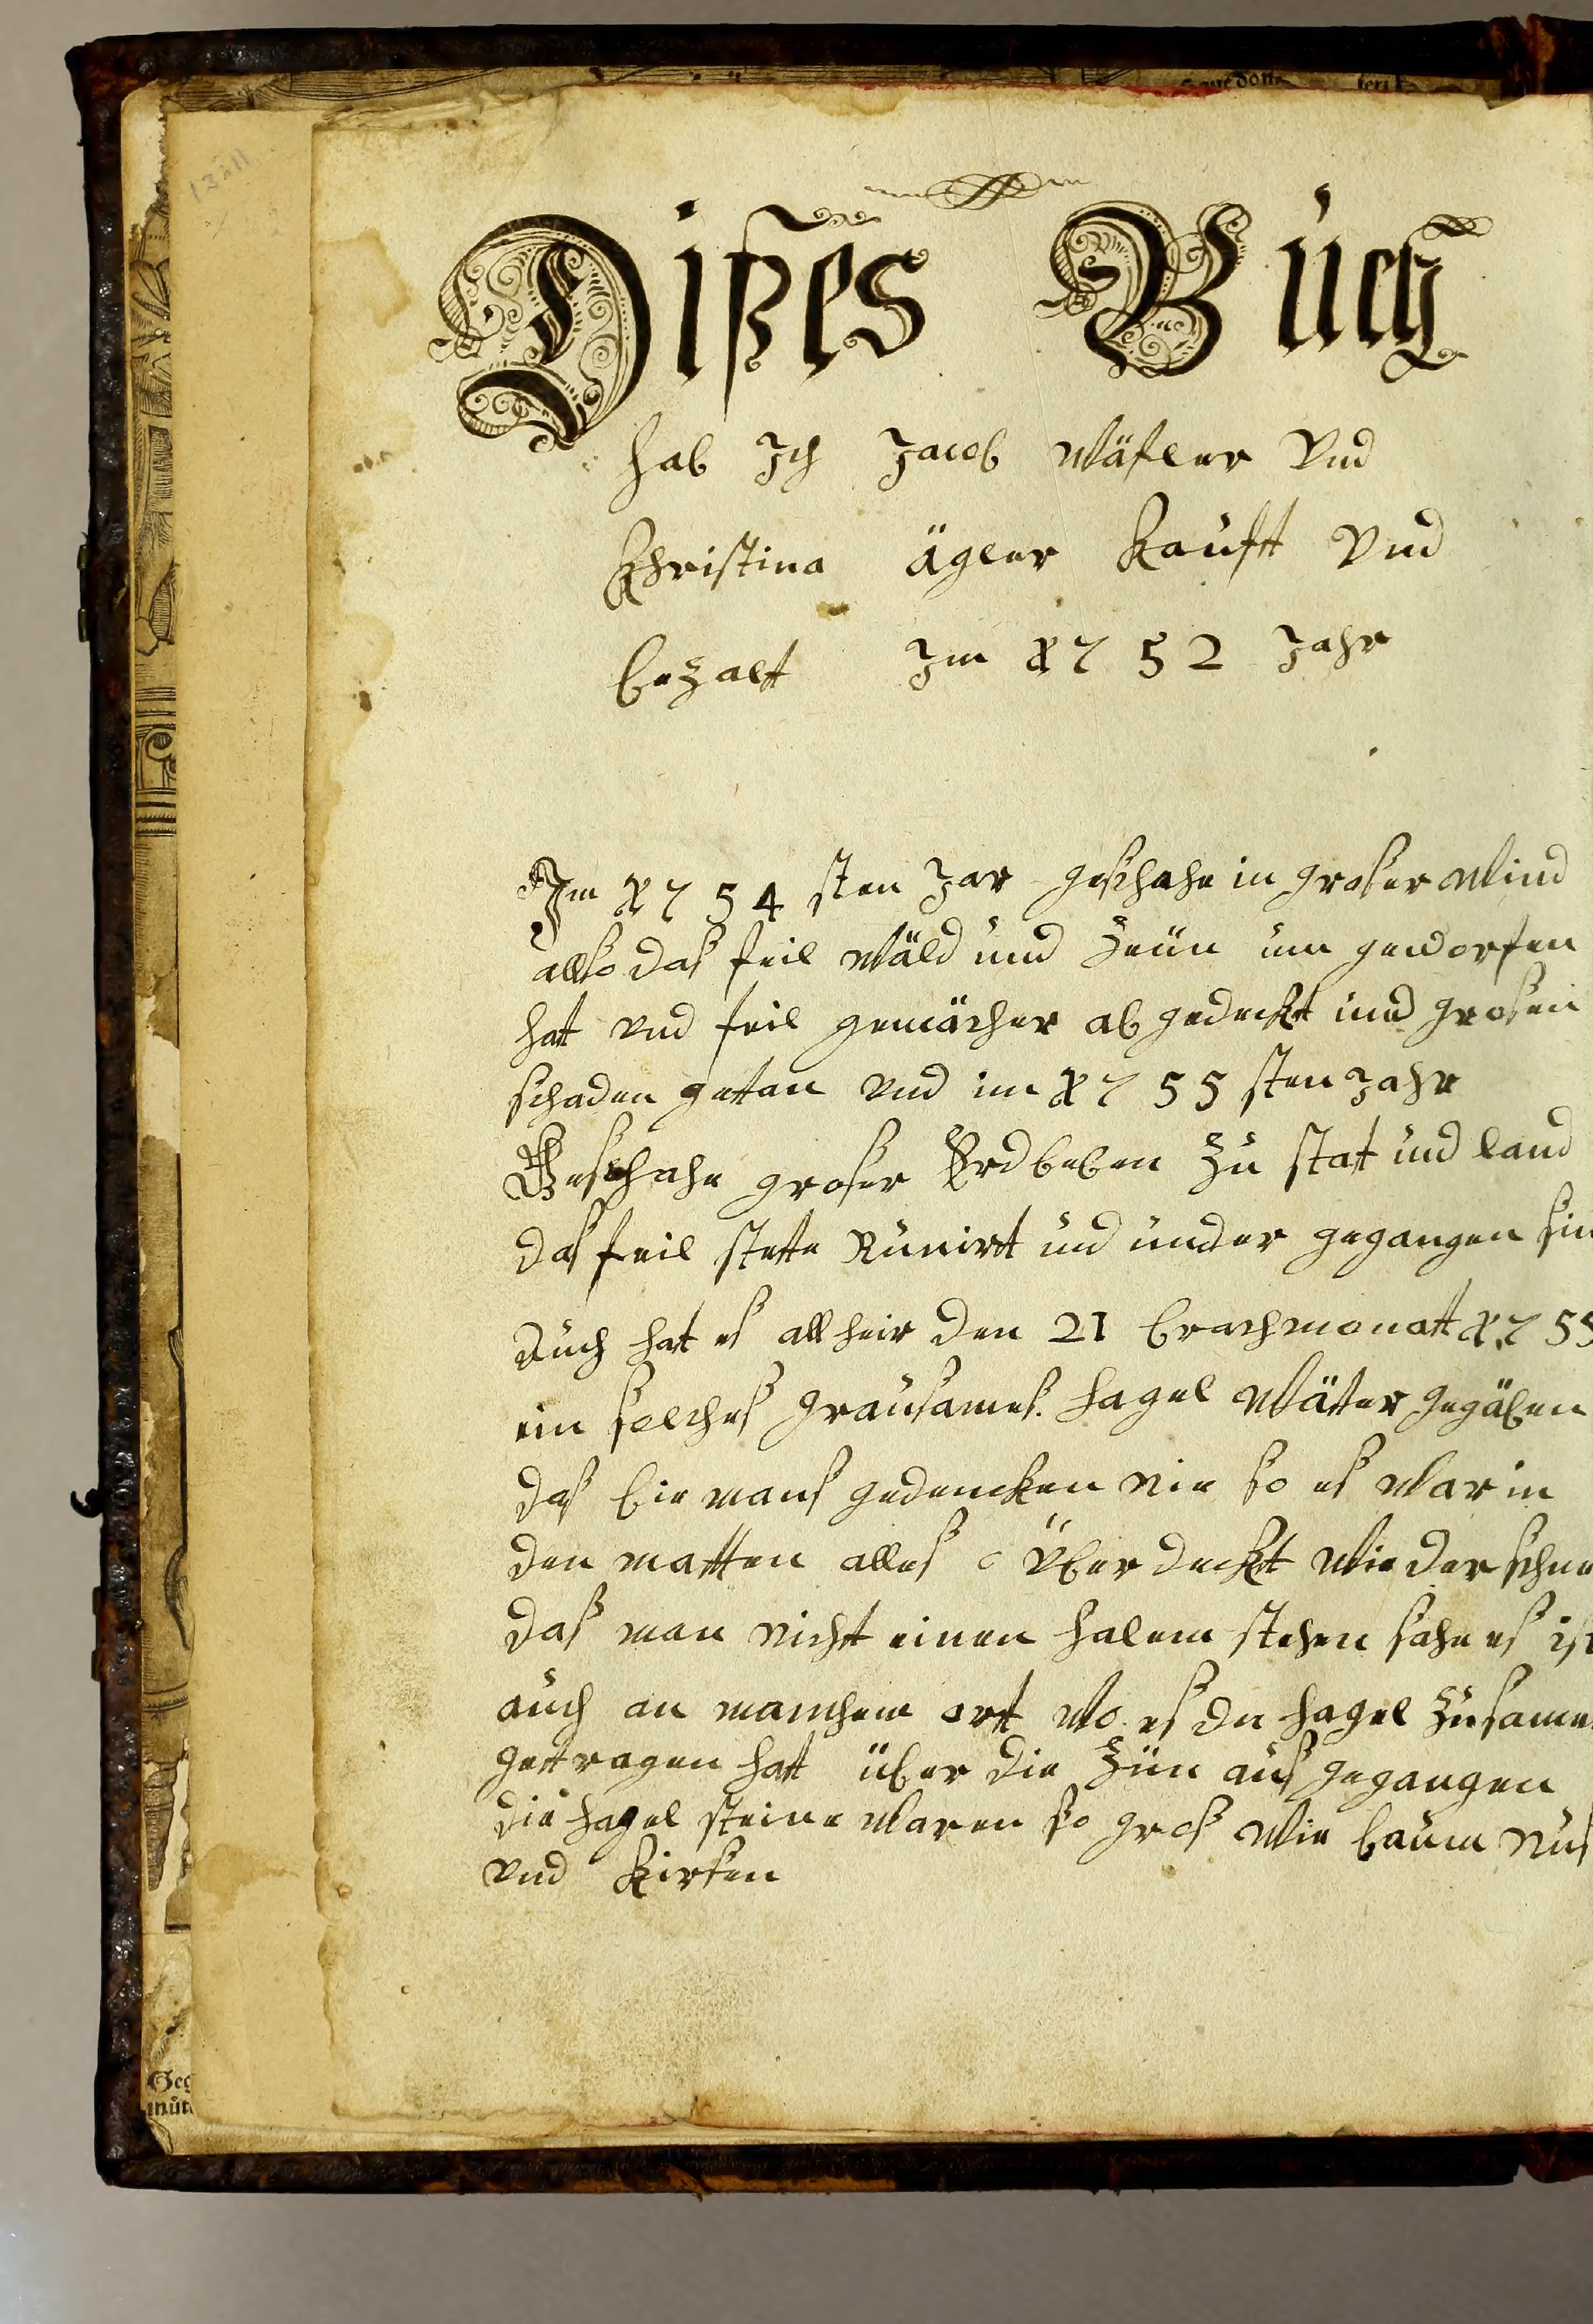 Dißes Buch
hab Ich Jacob Wäfler Und
Christina ägler kauft Und
bezalt Im 1752 Jahr
Im 1754 sten Jar geschahe in großer Wind
allso das feil Wäld und Zeün um geworfen
hat und feil gemächer ab gedeckt und großen
schaden gettan und im 1755 sten Jahr
Geschahe großer Erdbeben Zu stat und land
das feil stette Runirt und under gegangen sin
Auch hat es all heir den 21 brachmonatt 1755
ein solches grausames hagel Wätter gegäben
das bie mans gedencken nie so es War in
den matten alles Über deckt Wie der schne
das man nicht einen halem stehen sahe es ist
auch an manchem ortt Wo es den hagel Zusame
gettragen hatt über die Zün aus gegangen
die hagel steine Waren so gros Wie baum Nus
und kirsen
13211
Geg
müt